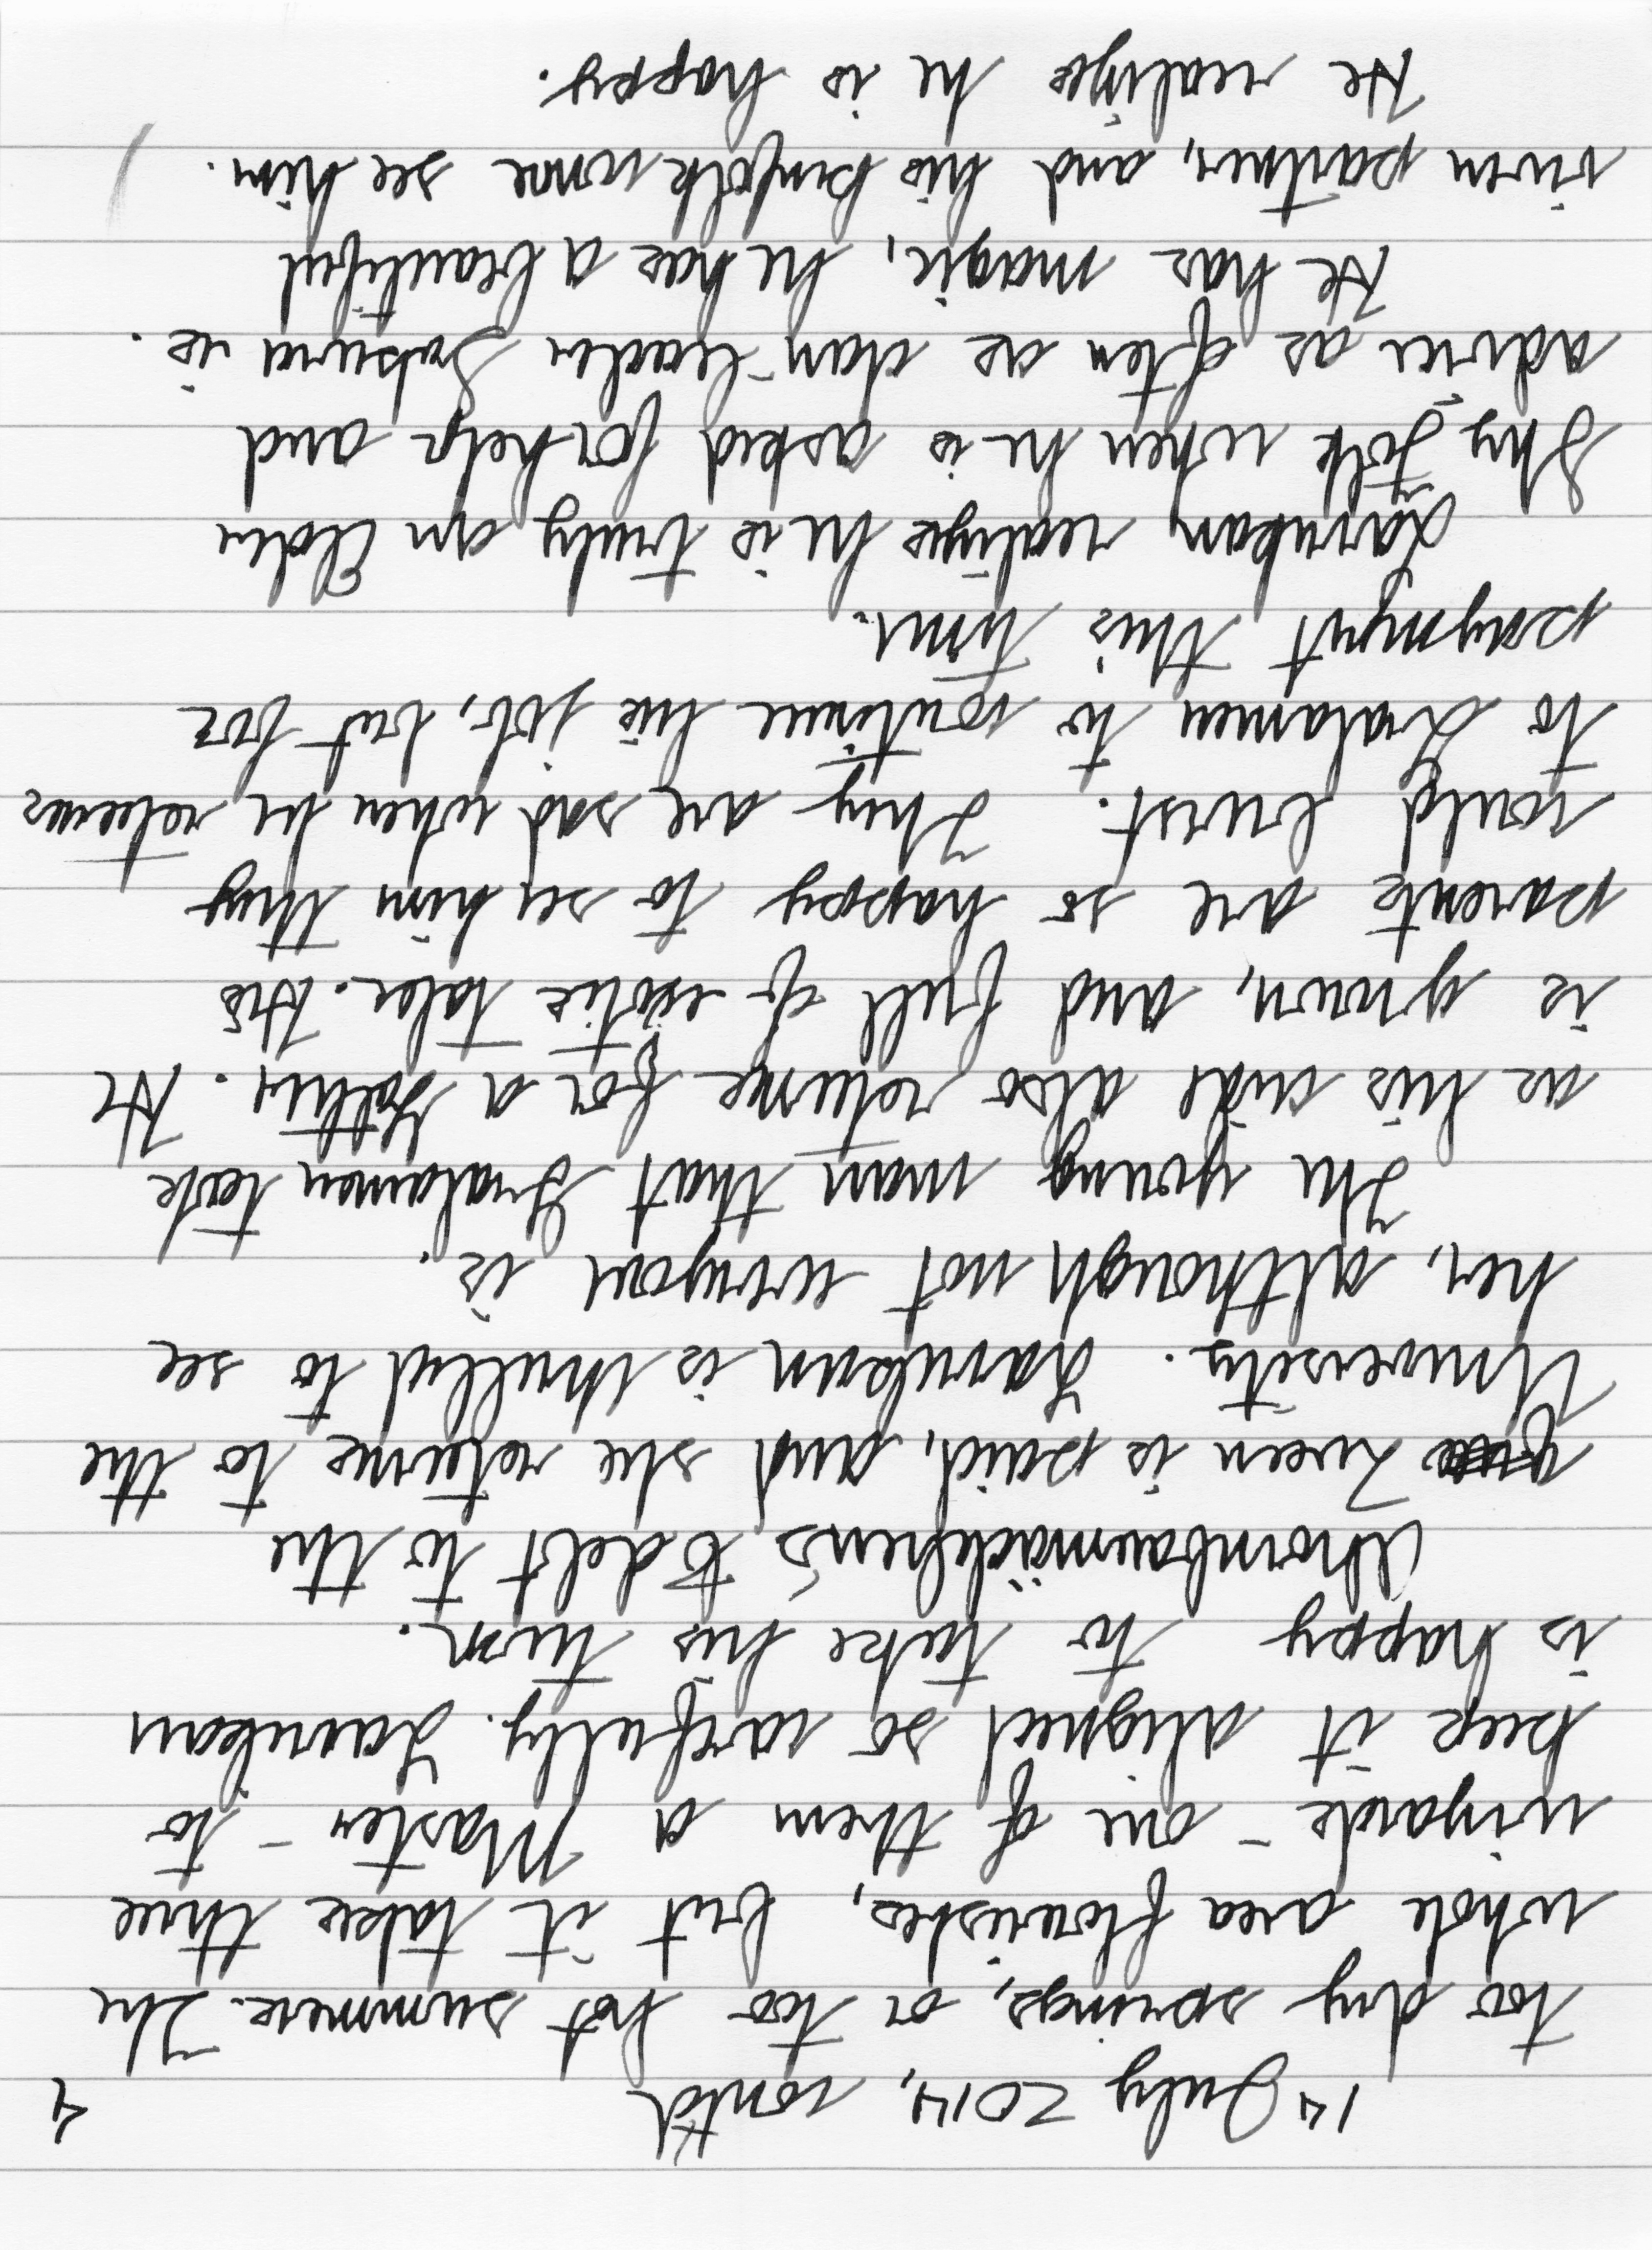 14 July 2014, cont'd 4
too dry springs, or too hot summers. The
whole area flourishes, but it takes three
wizards - one of them a Master - to
keep it aligned so carefully. Larnikan
is happy to take his turn.
Ahornbaumädchen's debt to the
Queen is paid, and she returns to the
University. Larnikan is thrilled to see
her, although not everyone is.
The young man that Iralamen took
as his aide also returns for a for a
is grown, and full of exotic tales. His
parents are so happy to see him they
could burst. They are sad when he returns
to Iralamen to continue his job, but for
payment this time.
Larnikan realizes he is truly an Elder
Shy Folk when he is asked for help and
advice as often as clan-leader is.
He has magic, he has a beautiful
river partner, and his kinfolk come see him.
He realizes he is happy.